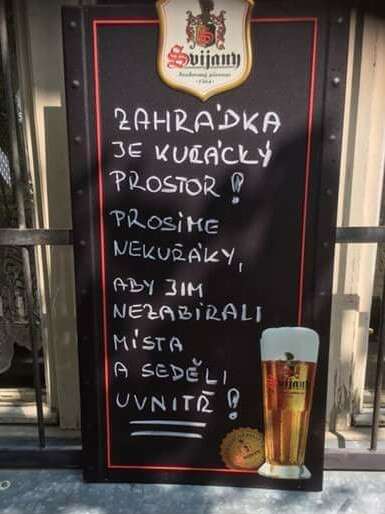 Svijany
ZAHRÁDKA
JE KUŘÁCKÝ
PROSTOR!
PROSÍME
NEKUŘÁKY,
ABY JIM
NEZABÍRALI
MÍSTA
A SEDĚLI
UVNITŘ!
Svijany